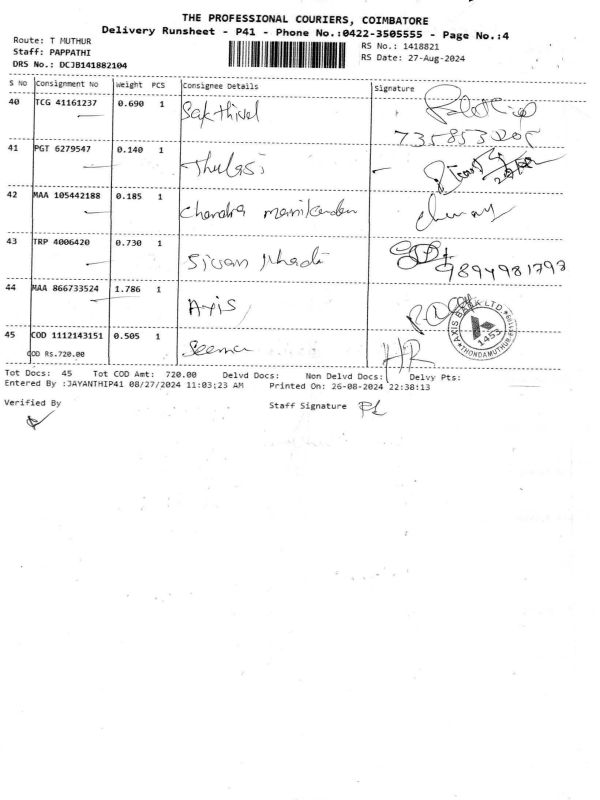 THE PROFESSIONAL COURIERS, COIMBATORE
Delivery Runsheet - P41 - Phone No.:0422-3505555 - Page No.:4
Route: T MUTHUR
RS No.: 1418821
Staff: PAPPATHI
RS Date: 27-Aug-2024
DRS No.: DCJB141882104
S NO Consignment No Weight PCS Consignee Details Signature
40 TCG 41161237 0.690 1 Sakthivel
735853205
41 PGT 6279547 0.140 1 Thulasi
42 MAA 105442188 0.185 1 Chandra manikandan
43 TRP 4006420 0.730 1 Sivan
9894981793
44 MAA 866733524 1.786 1 Axis
AXIS BANK LTD.
1453
45 COD 1112143151 0.505 1 Seema
COD Rs.720.00
Tot Docs: 45 Tot COD Amt: 720.00 Delvd Docs: Non Delvd Docs: Delvy Pts:
Entered By :JAYANTHIP41 08/27/2024 11:03:23 AM Printed On: 26-08-2024 22:38:13
Verified By Staff Signature